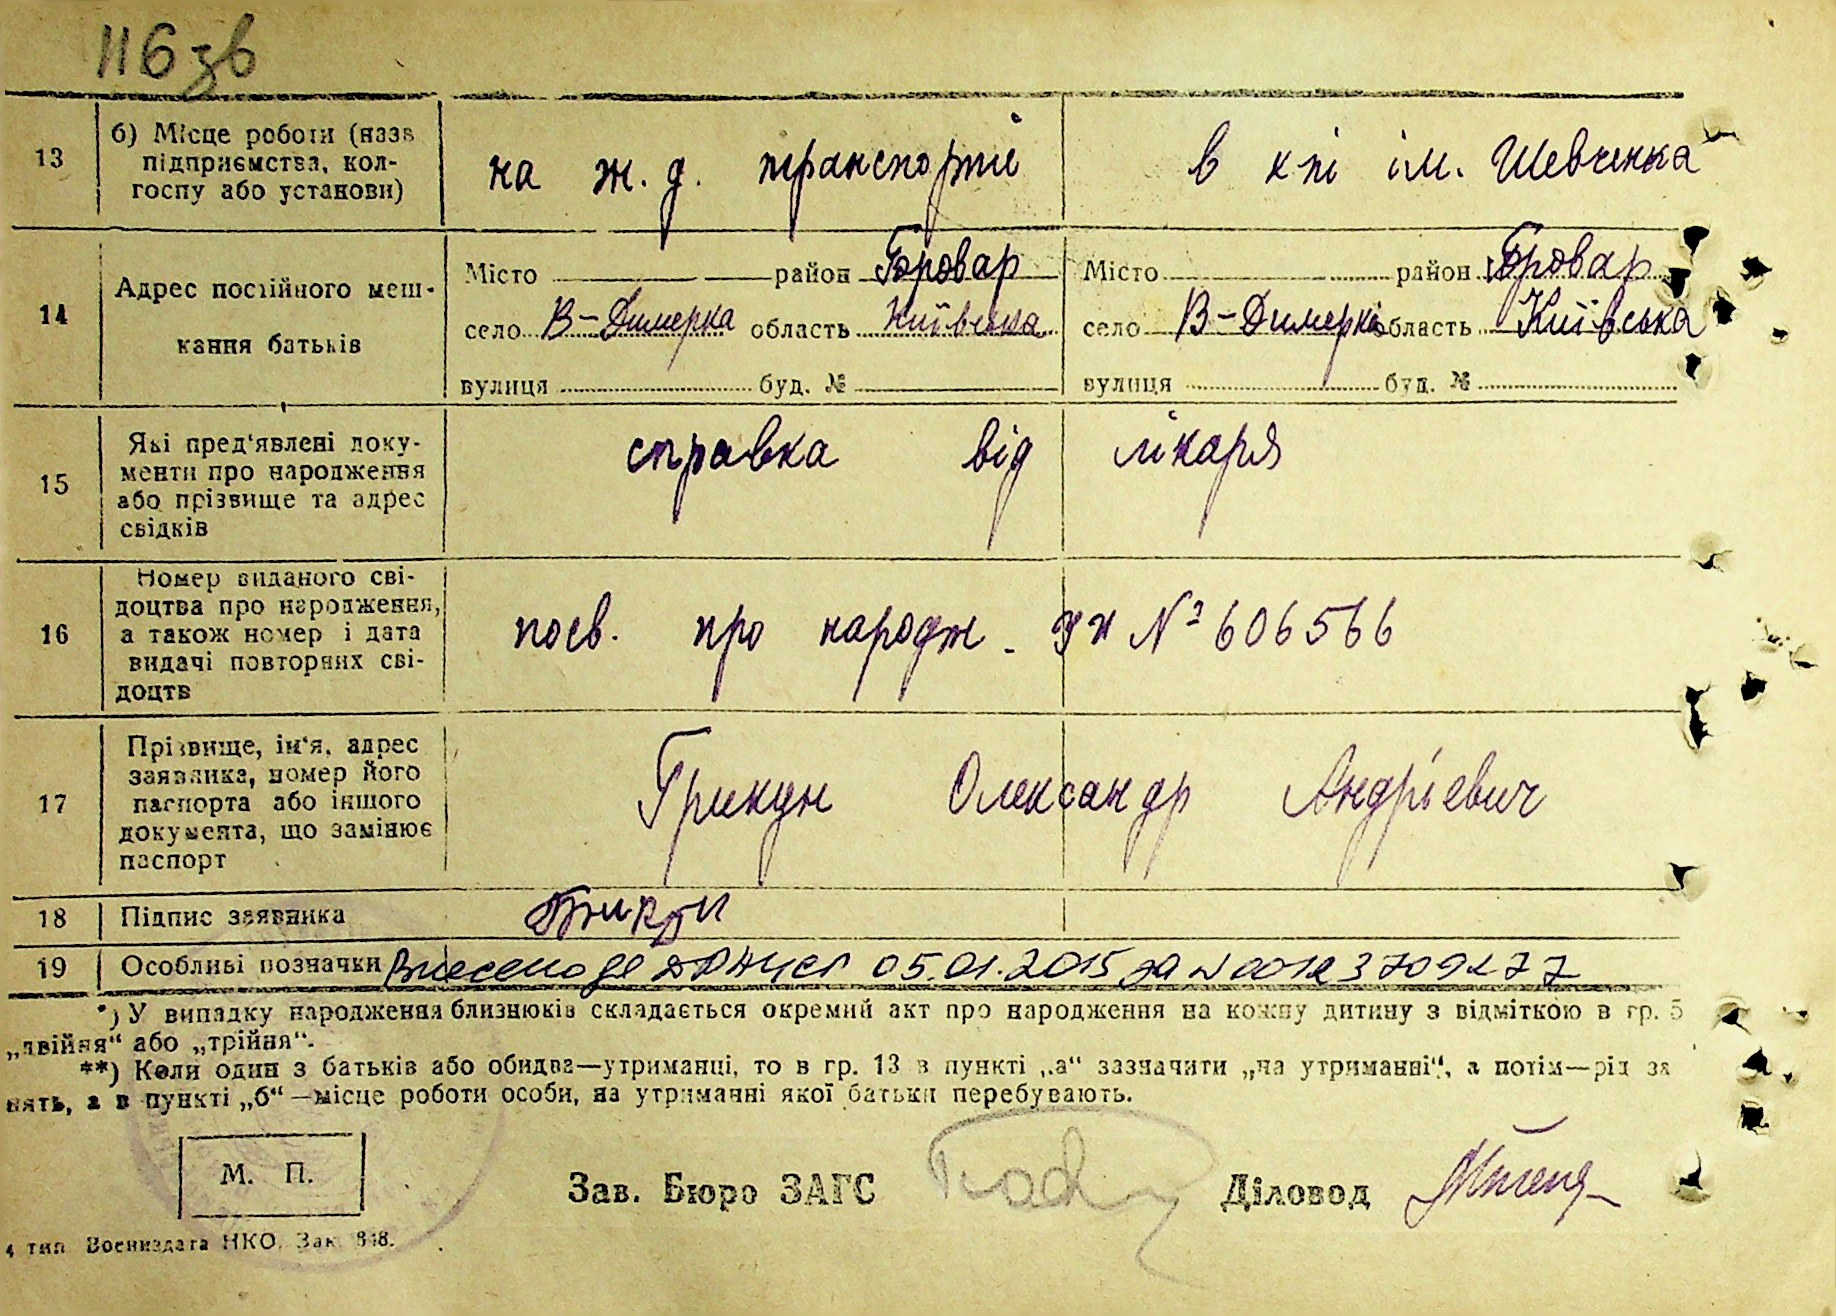 116 зв
13 б) Місце роботи (назв підприємства, кол-госпу або установи) на ж. д. транспорті в кпі ім. Шевченка
14 Адрес постійного меш-
кання батьків
Місто район Бровар Місто район Бровар
село В-Димерка область Київська село В-Димерка область Київська
вулиця буд. № вулиця буд. №
15 Які пред'явлені доку-
менти про народження
або прізвище та адрес
свідків
справка від лікаря
16 Номер виданого сві-
доцтва про народження,
а також номер і дата
видачі повторних сві-
доцтв
посв. про народж. УК № 606566
17 Прізвище, ім'я, адрес
заявника, номер його
паспорта або іншого
документа, що замінює
паспорт
Грикун Олександр Андрієвич
18 Підпис заявника
19 Особливі позначки Внесено до ДРАЦСГ 05.01.2015 за № 00123709277
*) У випадку народження близнюків складається окремий акт про народження на кожну дитину з відміткою в гр. 5
„двійня“ або „трійня“.
**) Коли один з батьків або обидва—утриманці, то в гр. 13 в пункті „а“ зазначити „на утриманні“, а потім—рід за
нять, а в пункті „б“—місце роботи особи, на утриманні якої батьки перебувають.
М. П.
Зав. Бюро ЗАГС Діловод
4 тип Воениздата НКО. Зак. 848.